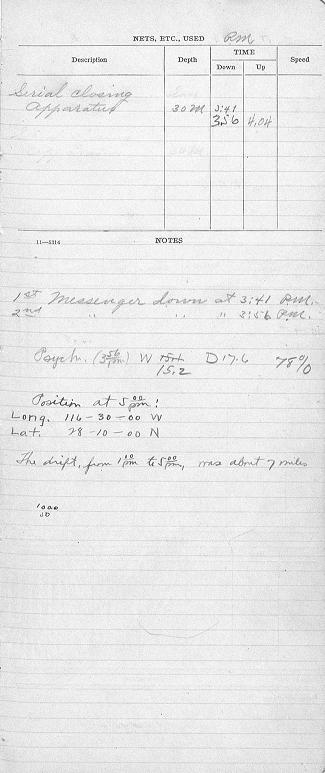 NETS, ETC., USED P.M.
Description Depth TIME Speed
Down Up
Serial closing
Apparatus 30 M 3:41
3:56 4.04
11—5316 NOTES
1st Messenger down at 3:41 P.M.
2nd " " " 3:56 P.M.
Psych. (3 56 pm) W 15.4 D 17.6 78%
15.2
Position at 5 00 pm:
Long. 116-30-00 W
Lat. 28-10-00 N
The drift, from 1 00 pm to 5 00 pm, was about 7 miles
1000
50